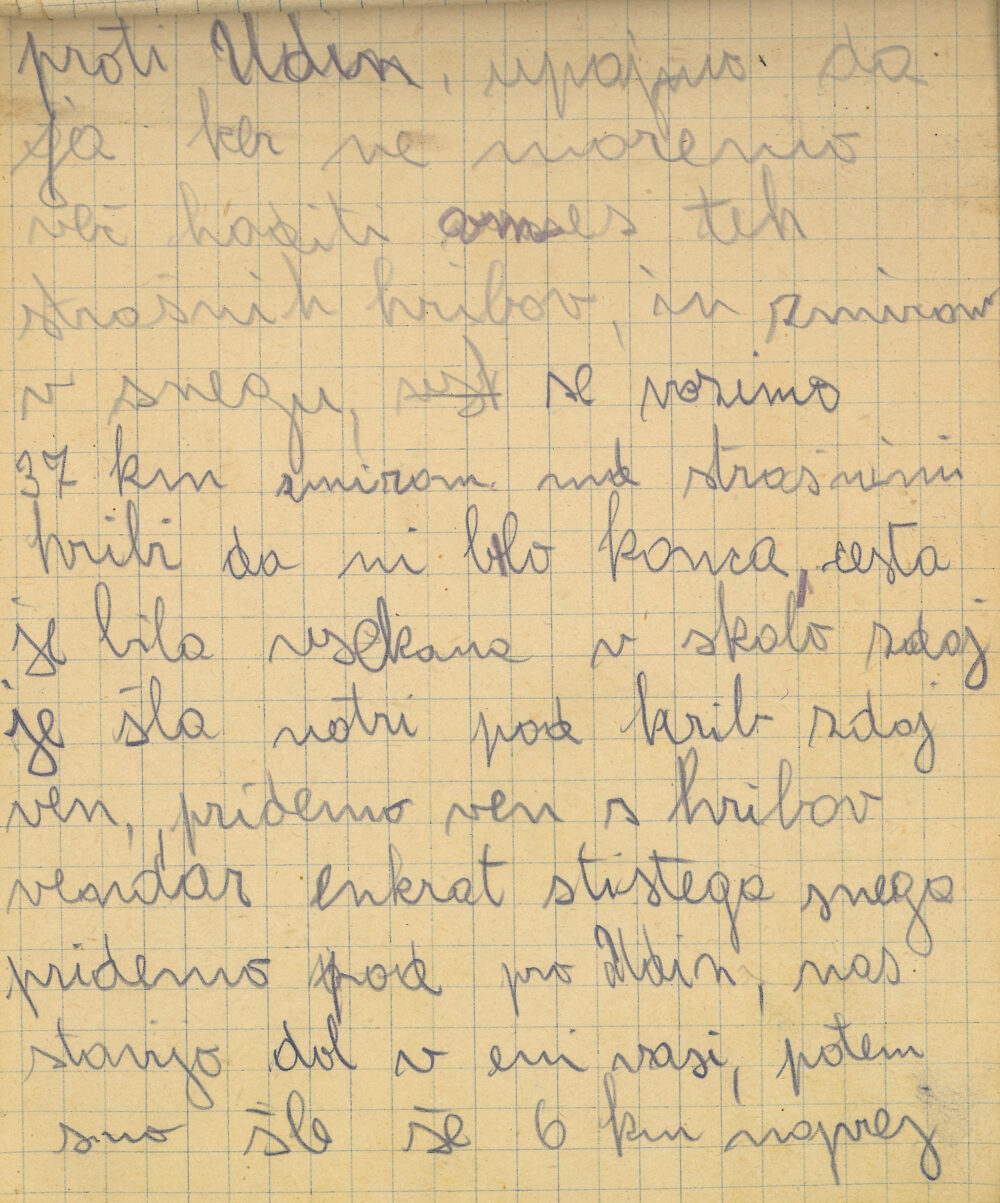 proti Udin, upajmo da
ja ker ne moremo
več hoditi čes teh
strašnih hribov, in zmirom
v snegu, se vozimo
37 km zmirom med strašnimi
hribi da ni blo konca, cesta
je bila vsekana v skalo zdaj
je šla notri pod hrib zdaj
ven, pridemo ven s hribov
vendar enkrat stistega snega
pridemo pod pro Udin, nas
stavijo dol v eni vasi, potem
smo šle še 6 km naprej